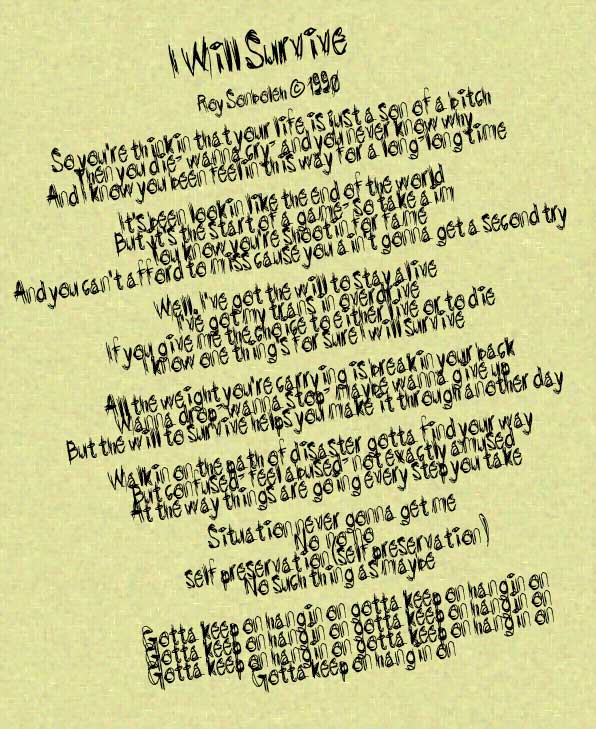 I Will Survive
Roy Sonboleh © 1990
So you're thinkin that your life is just a son of a bitch
Then you die- wanna cry- and you never know why
And I know you been feelin this way for a long-long time
It's been lookin like the end of the world
But it's the start of a game- so take aim
You know you're shootin for fame
And you can't afford to miss cause you ain't gonna get a second try
Well, I've got the will to stay alive
I've got my trans in overdrive
If you give me the choice to either live or to die
I know one thing's for sure I will survive
All the weight you're carrying is breakin your back
Wanna drop- wanna stop- maybe wanna give up
But the will to survive helps you make it through another day
Walkin on the path of disaster gotta find your way
But confused- feel abused- not exactly amused
At the way things are going every step you take
Situation never gonna get me
No no-no
self preservation (self preservation)
No such thing as maybe
Gotta keep on hangin on gotta keep on hangin on
Gotta keep on hangin on gotta keep on hangin on
Gotta keep on hangin on gotta keep on hangin on
Gotta keep on hangin on